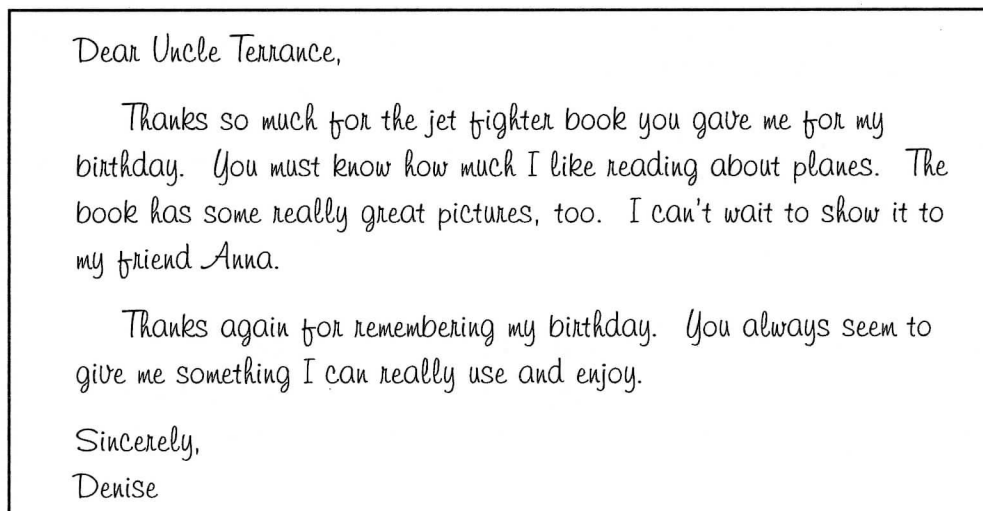 Dear Uncle Terrance,
Thanks so much for the jet fighter book you gave me for my
birthday. You must know how much I like reading about planes. The
book has some really great pictures, too. I can't wait to show it to
my friend Anna.
Thanks again for remembering my birthday. You always seem to
give me something I can really use and enjoy.
Sincerely,
Denise